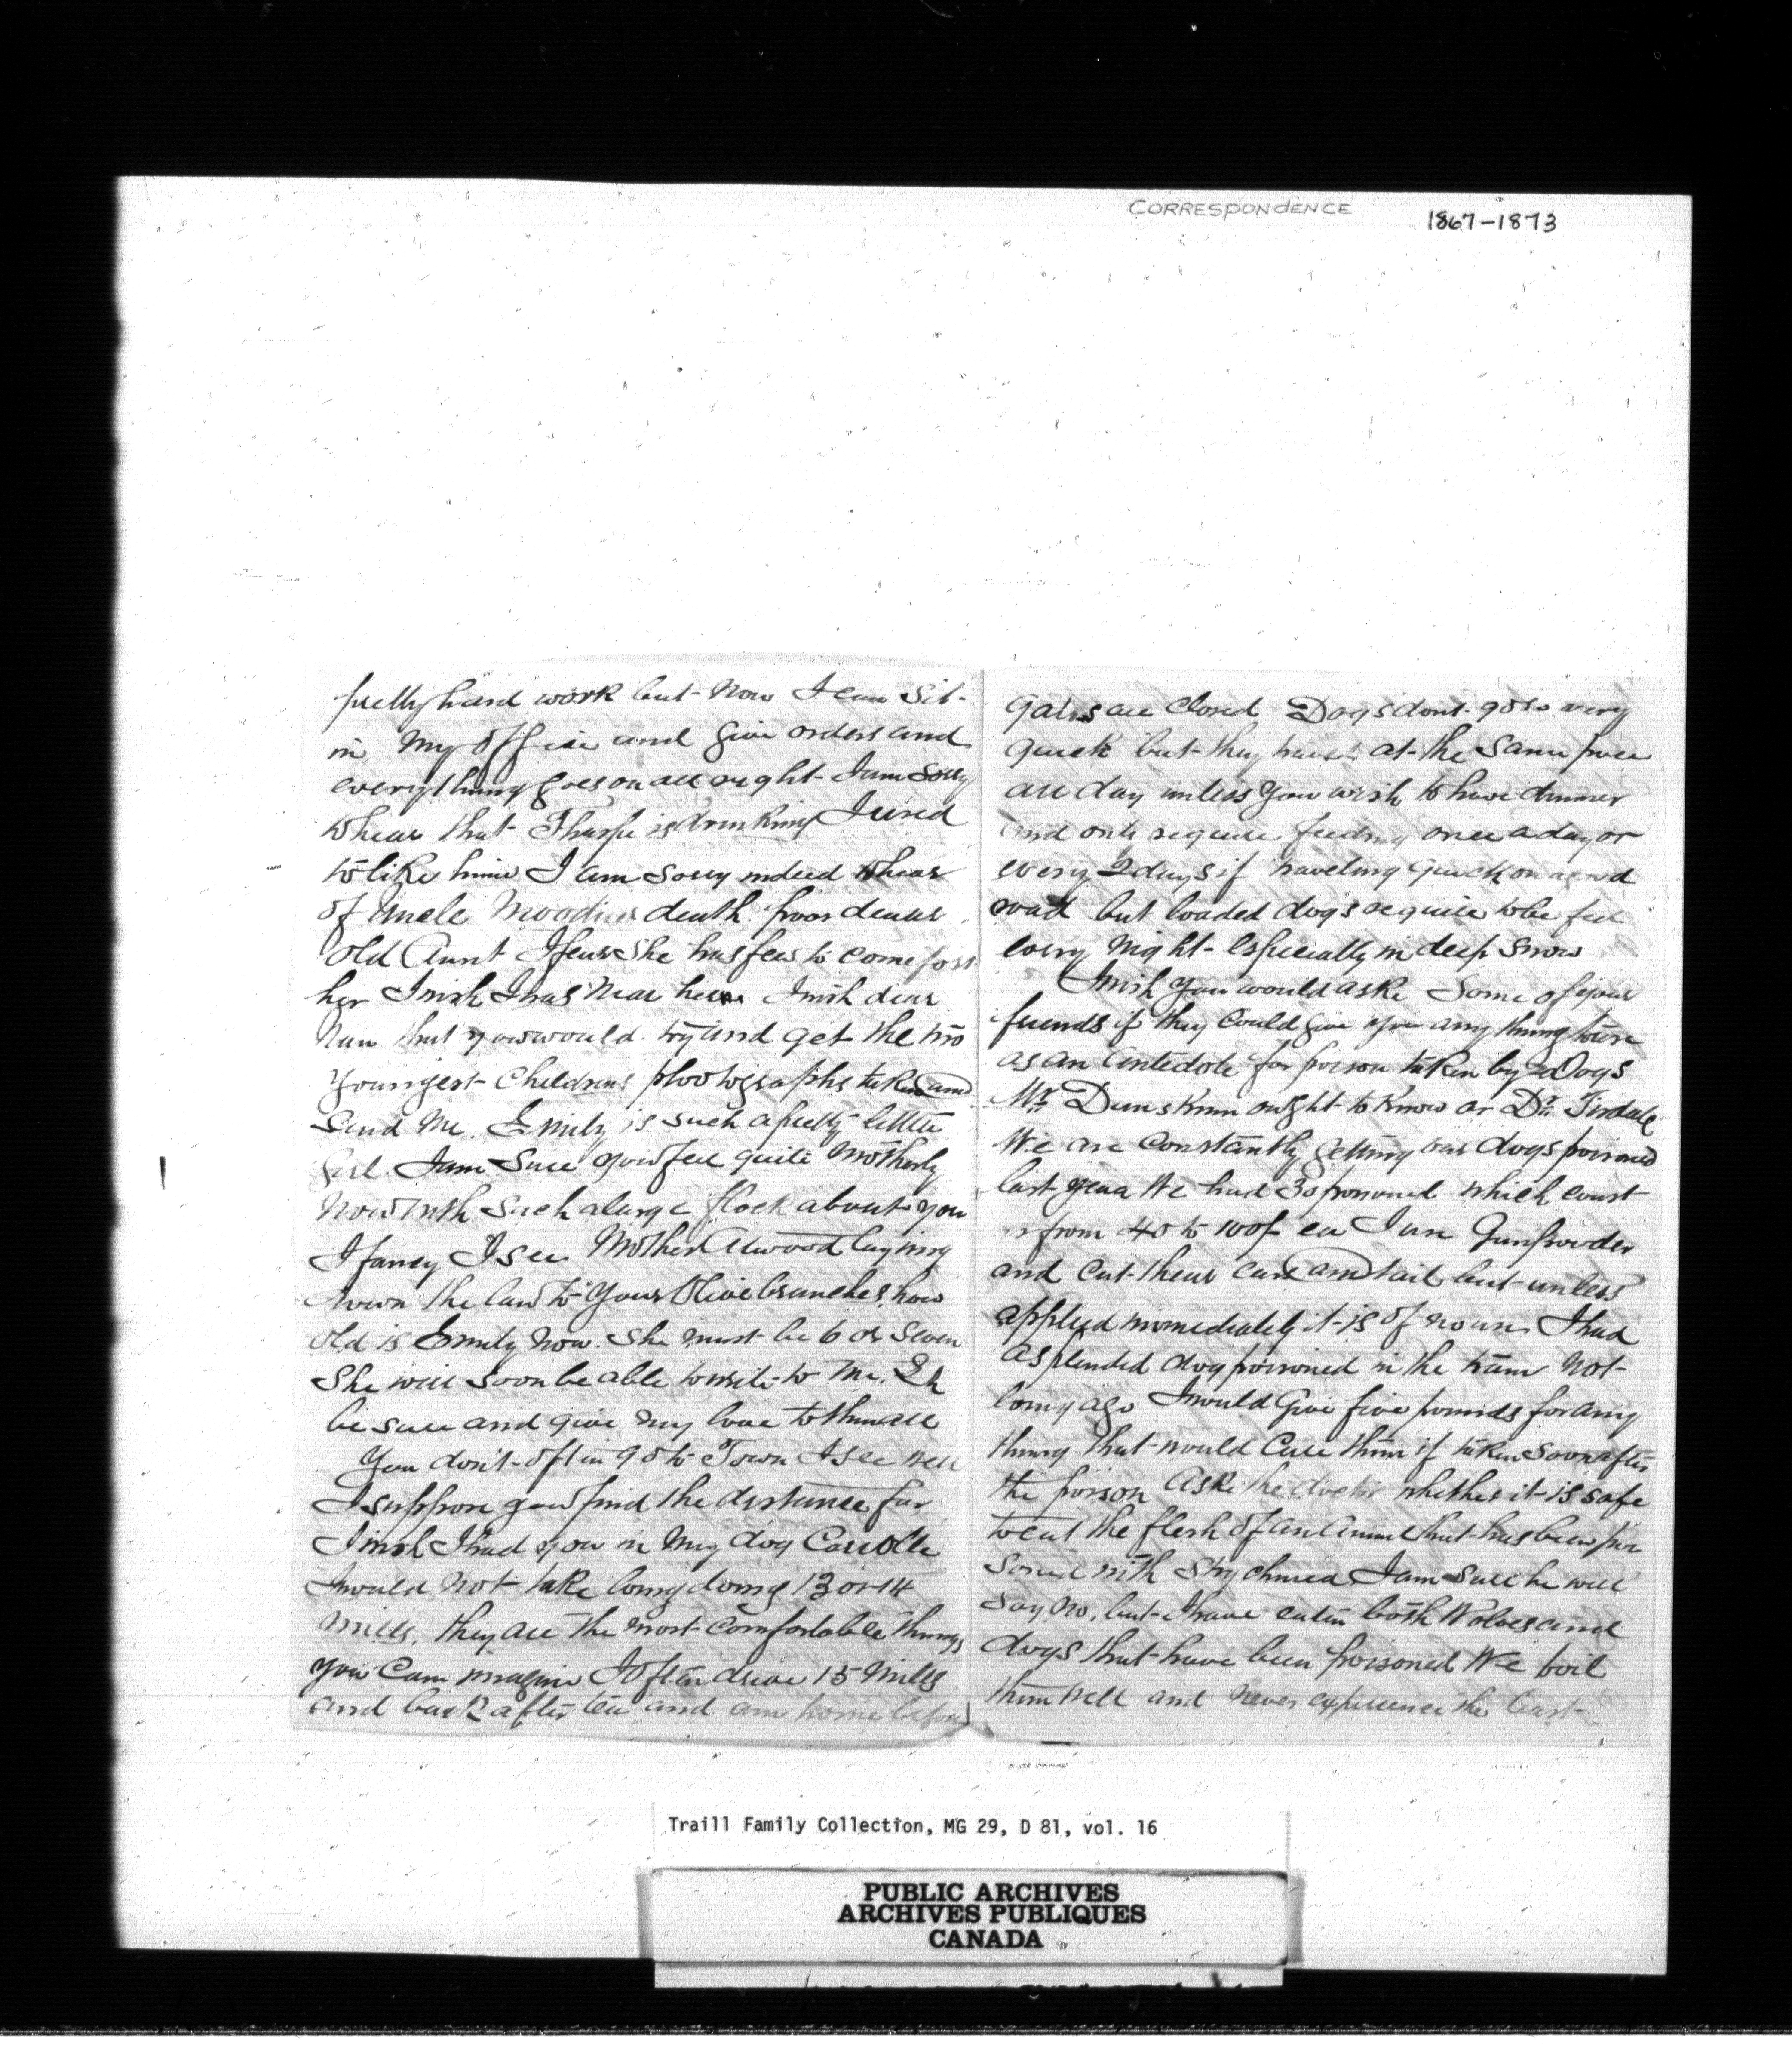 CORRESPONDENCE 1867-1873
pretty hard work but now I can sit
in my Office and give orders and
everything goes on all right I am sorry
to hear that Tharpe is drinking I used
to like him I am sorry indeed to hear
of Uncle Moodies death. poor dear
Old Aunt I fear she has few to comfort
her I wish I was near her I wish dear
that you would try and get the two
Youngest Childrens photographs taken and
send me. Emily is such a pretty little
girl. I am sure you feel quite Motherly
now with such a large flock about you
I fancy I see Mother Atwood laying
down the law to your Olive branches, how
old is Emily now. She must be 6 or seven
She will soon be able to write to me. Eh
be sure and give my love to them all
You don't often go to Town I see well
I suppose you find the distance far
I wish I had you in my dog Carriole
I would not take long doing 13 or 14
Miles, they are the most comfortable things
you can imagine I often drive 15 miles
and back after tea and am home before
gates are closed Dogs dont go so very
quick but they travel at the same pace
all day unless you wish to have dinner
and only require feeding once a day or
every 2 days if traveling quick on a good
road but loaded dogs require to be fed
every night especially in deep snow
I wish you would aske some of your
friends if they could give you any thing to use
as an antedote for poison taken by Dogs
Mr Dunskinn ought to know or Dr Tisdale
We are constantly getting our dogs poisoned
last year We had 30 poisoned which coust
us from 40 to 100/- ea I use Gunpowder
and cut their ears and tail but unless
applied immediately it is of no use I had
a splendid dog poisoned in the train not
long ago I would Give five pounds for any
thing that would cure them if taken soon after
the poison Aske the doctor whether it is safe
to eat the flesh of an animal that has been poi
soned with Strychnea I am sure he will
say no, but I have eaten both Wolves and
dogs that have been poisoned We boil
them well and never experience the least
Traill Family Collection, MG 29, D 81, vol. 16
PUBLIC ARCHIVES
ARCHIVES PUBLIQUES
CANADA